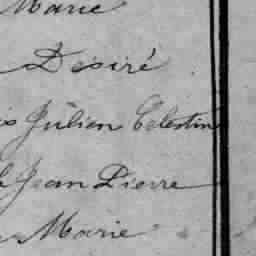 Marie
Désiré
Julien Celestin
Jean Pierre
Marie